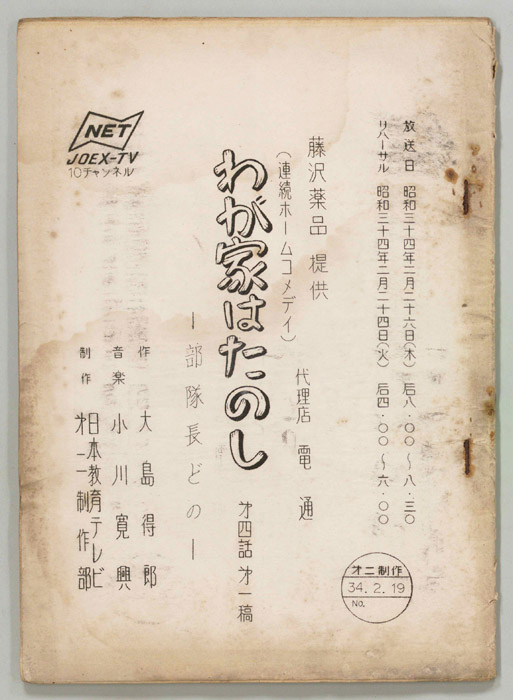 放送日 昭和三十四年二月二十六日(木) 后八・〇〇〜八・三〇
リハーサル 昭和三十四年二月二十四日(火) 后四・〇〇〜六・〇〇
藤沢薬品 提供
代理店 電通
(連続ホームコメデイ)
わが家はたのし
才四話 才一稿
ー部隊長どのー
作 大島得郎
音楽 小川寛興
制作 日本教育テレビ
才二制作部
NET
JOEX-TV
10チャンネル
才二制作
34.2.19
NO.